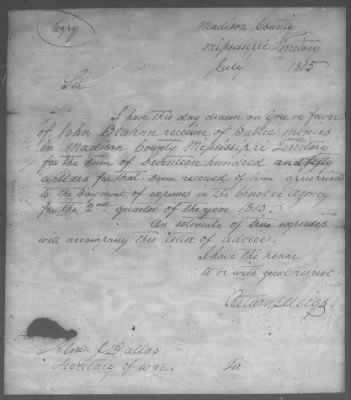 Copy
Madison County
Mississippi Territory
July 1815
Sir
I have this day drawn on You in favor
of John Brahan receiver of Public monies
in Madison County Mississippi Territory
for the sum of Seventeen hundred and fifty
dollars for that sum received of him appropriated
to the payment of expenses in the Cherokee Agency
for the 2nd quarter of the year 1815.
An estimate of these expenses
will accompany this letter of advice.
I have the honor
to be with great respect
Return J. Meigs
Alex J Dallas
Secretary of war. Sir